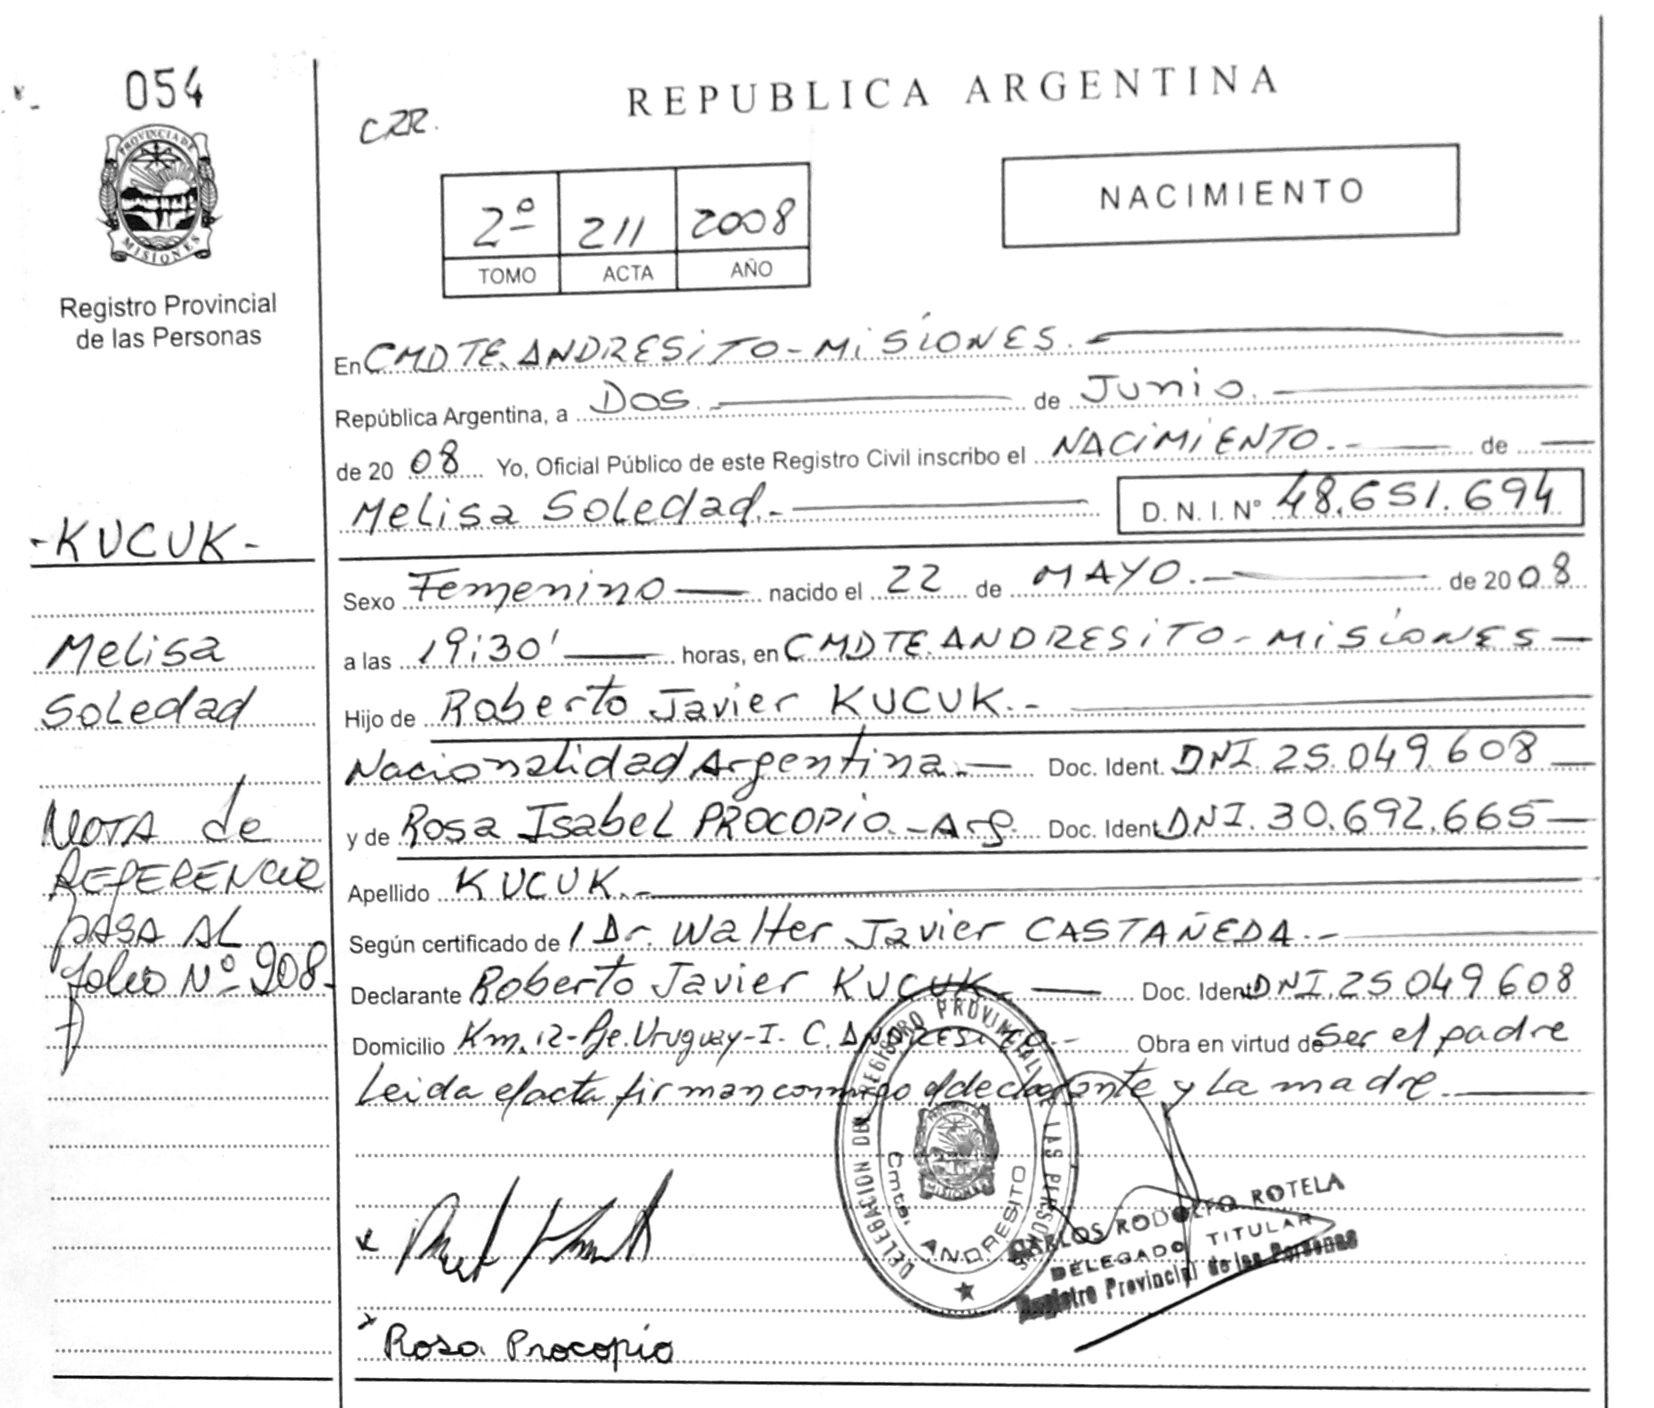 054
PROVINCIA DE
MISIONES
Registro Provincial
de las Personas
-KUCUK-
Melisa
Soledad
NOTA de
REFERENCIA
pasa AL
folio Nº 908-
CRR.
REPUBLICA ARGENTINA
2º 211 2008
TOMO ACTA AÑO
NACIMIENTO
En CMDTE. ANDRESITO - MISIONES.
República Argentina, a Dos. de Junio.
de 20 08 Yo, Oficial Público de este Registro Civil inscribo el NACIMIENTO. de
Melisa Soledad.- D. N. I. Nº 48.651.694
Sexo Femenino nacido el 22 de MAYO. de 20 08
a las 19:30' horas, en CMDTE. ANDRESITO - MISIONES
Hijo de Roberto Javier KUCUK.-
Nacionalidad Argentina.- Doc. Ident. DNI. 25.049.608
y de Rosa Isabel PROCOPIO.-Arg. Doc. Ident. DNI. 30.692.665
Apellido KUCUK.-
Según certificado de / Dr. Walter Javier CASTAÑEDA.-
Declarante Roberto Javier KUCUK. Doc. Ident. DNI 25049608
Domicilio Km. 12-Pje. Uruguay-I. C. ANDRESITO.- Obra en virtud de Ser el padre
Leida el acta firman conmigo el declarante y La madre.
DELEGACION DEL REGISTRO PROVINCIAL DE LAS PERSONAS
PROVINCIA DE
MISIONES
Cmte. ANDRESITO
CARLOS RODOLFO ROTELA
DELEGADO TITULAR
Registro Provincial de las Personas
Rosa Procopio